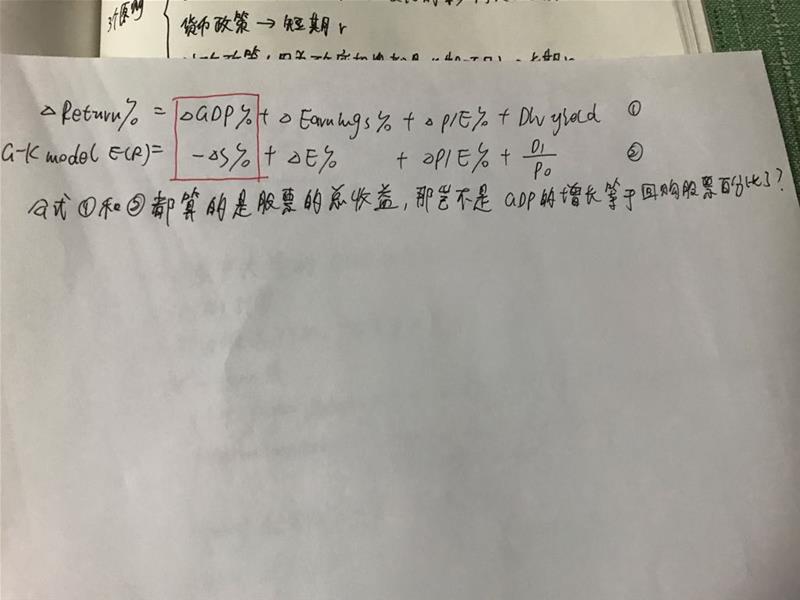 3个原则
货币政策 → 短期 r
△Return% = △GDP% + △Earnings% + △P/E% + Div yield ①
G-K model E(R) = -△S% + △E% + △P/E% + D1/P0 ②
公式①和②都算的是股票的总收益,那岂不是 GDP的增长等于回购股票百分比了?